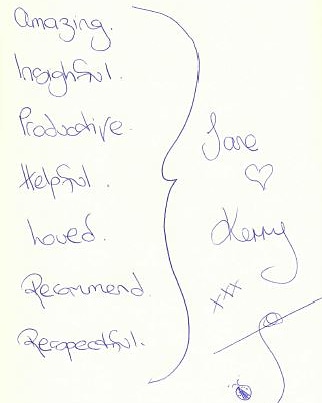 Amazing.
Insighful.
Productive.
Helpful.
Loved.
Recommend.
Respectful.
Jane
Kerry
xxx